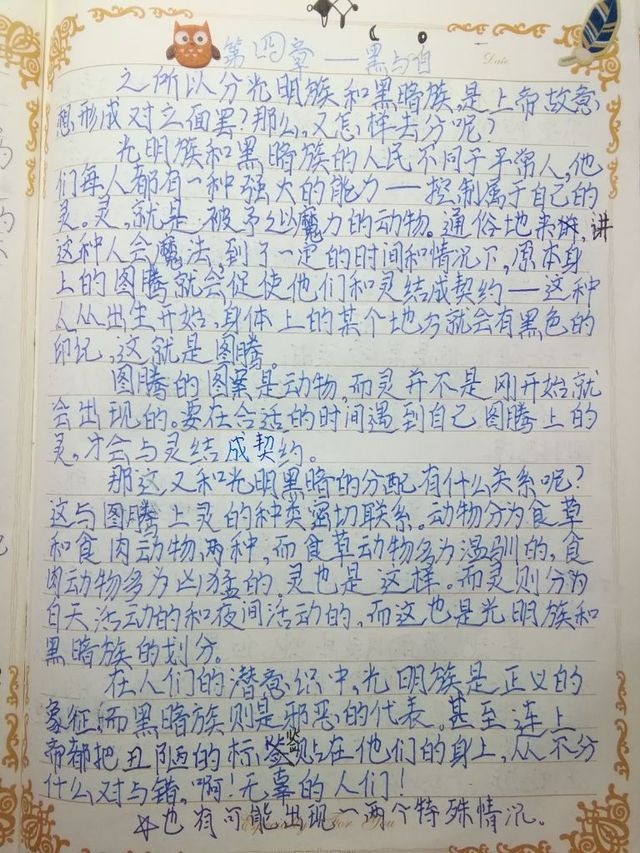 第四章 — 黑与白
Date
之所以分光明族和黑暗族,是上帝故意
想形成对立面罢?那么,又怎样去分呢?
光明族和黑暗族的人民不同于平常人,他
们每人都有一种强大的能力—控制属于自己的
灵。灵,就是被予以魔力的动物。通俗地来讲,
这种人会魔法,到了一定的时间和情况下,原本身
上的图腾就会促使他们和灵结成契约—这种
人从出生开始,身体上的某个地方就会有黑色的
印记,这就是图腾。
图腾的图案是动物,而灵并不是刚开始就
会出现的。要在合适的时间遇到自己图腾上的
灵,才会与灵结成契约。
那这又和光明黑暗的分配有什么关系呢?
这与图腾上灵的种类密切联系。动物分为食草
和食肉动物,两种,而食草动物多为温驯的,食
肉动物多为凶猛的。灵也是这样。而灵则分为
白天活动的和夜间活动的,而这也是光明族和
黑暗族的划分。
在人们的潜意识中,光明族是正义的
象征,而黑暗族则是邪恶的代表。甚至连上
帝都把丑陋的标签贴在他们的身上,从不分
什么对与错,啊!无辜的人们!
☆也有可能出现一两个特殊情况。